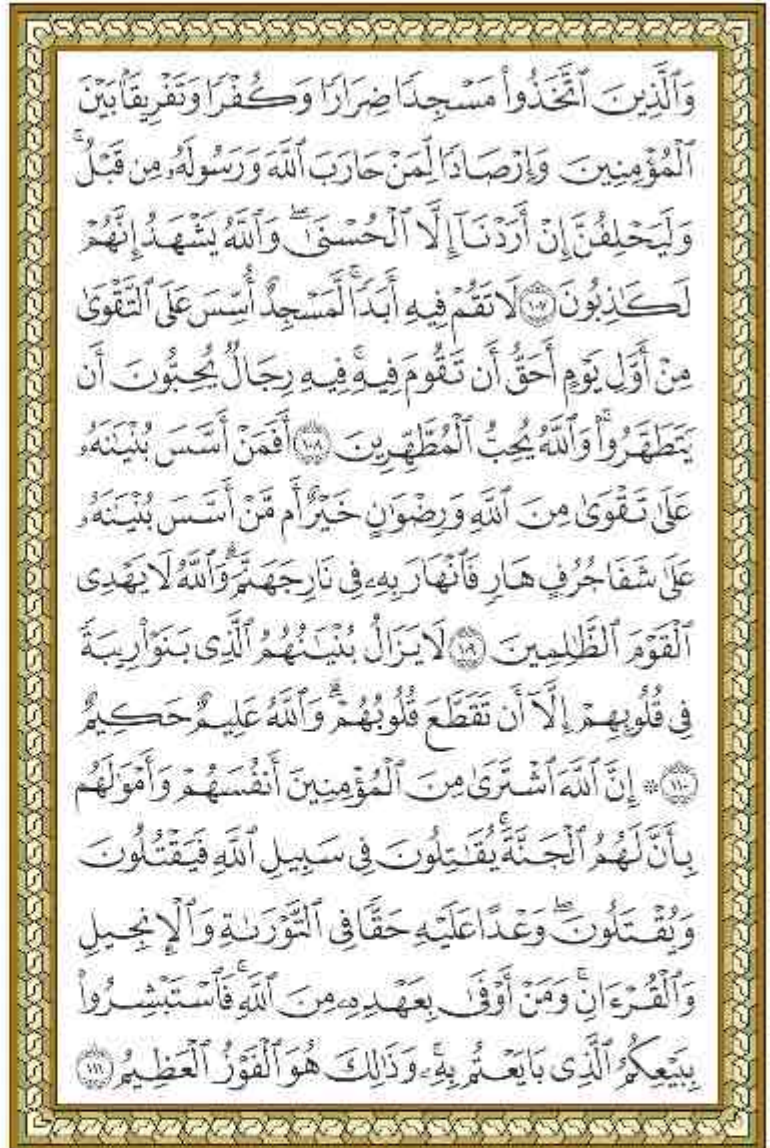 وَٱلَّذِينَ ٱتَّخَذُوا۟ مَسْجِدًا ضِرَارًا وَكُفْرًا وَتَفْرِيقًۢا بَيْنَ
ٱلْمُؤْمِنِينَ وَإِرْصَادًا لِّمَنْ حَارَبَ ٱللَّهَ وَرَسُولَهُۥ مِن قَبْلُ ۚ
وَلَيَحْلِفُنَّ إِنْ أَرَدْنَآ إِلَّا ٱلْحُسْنَىٰ ۖ وَٱللَّهُ يَشْهَدُ إِنَّهُمْ
لَكَٰذِبُونَ ١٠٧ لَا تَقُمْ فِيهِ أَبَدًا ۚ لَّمَسْجِدٌ أُسِّسَ عَلَى ٱلتَّقْوَىٰ
مِنْ أَوَّلِ يَوْمٍ أَحَقُّ أَن تَقُومَ فِيهِ ۚ فِيهِ رِجَالٌ يُحِبُّونَ أَن
يَتَطَهَّرُوا۟ ۚ وَٱللَّهُ يُحِبُّ ٱلْمُطَّهِّرِينَ ١٠٨ أَفَمَنْ أَسَّسَ بُنْيَٰنَهُۥ
عَلَىٰ تَقْوَىٰ مِنَ ٱللَّهِ وَرِضْوَٰنٍ خَيْرٌ أَم مَّنْ أَسَّسَ بُنْيَٰنَهُۥ
عَلَىٰ شَفَا جُرُفٍ هَارٍ فَٱنْهَارَ بِهِۦ فِى نَارِ جَهَنَّمَ ۗ وَٱللَّهُ لَا يَهْدِى
ٱلْقَوْمَ ٱلظَّٰلِمِينَ ١٠٩ لَا يَزَالُ بُنْيَٰنُهُمُ ٱلَّذِى بَنَوْا۟ رِيبَةً
فِى قُلُوبِهِمْ إِلَّآ أَن تَقَطَّعَ قُلُوبُهُمْ ۗ وَٱللَّهُ عَلِيمٌ حَكِيمٌ
١١٠ ۞ إِنَّ ٱللَّهَ ٱشْتَرَىٰ مِنَ ٱلْمُؤْمِنِينَ أَنفُسَهُمْ وَأَمْوَٰلَهُم
بِأَنَّ لَهُمُ ٱلْجَنَّةَ ۚ يُقَٰتِلُونَ فِى سَبِيلِ ٱللَّهِ فَيَقْتُلُونَ
وَيُقْتَلُونَ ۖ وَعْدًا عَلَيْهِ حَقًّا فِى ٱلتَّوْرَىٰةِ وَٱلْإِنجِيلِ
وَٱلْقُرْءَانِ ۚ وَمَنْ أَوْفَىٰ بِعَهْدِهِۦ مِنَ ٱللَّهِ ۚ فَٱسْتَبْشِرُوا۟
بِبَيْعِكُمُ ٱلَّذِى بَايَعْتُم بِهِۦ ۚ وَذَٰلِكَ هُوَ ٱلْفَوْزُ ٱلْعَظِيمُ ١١١